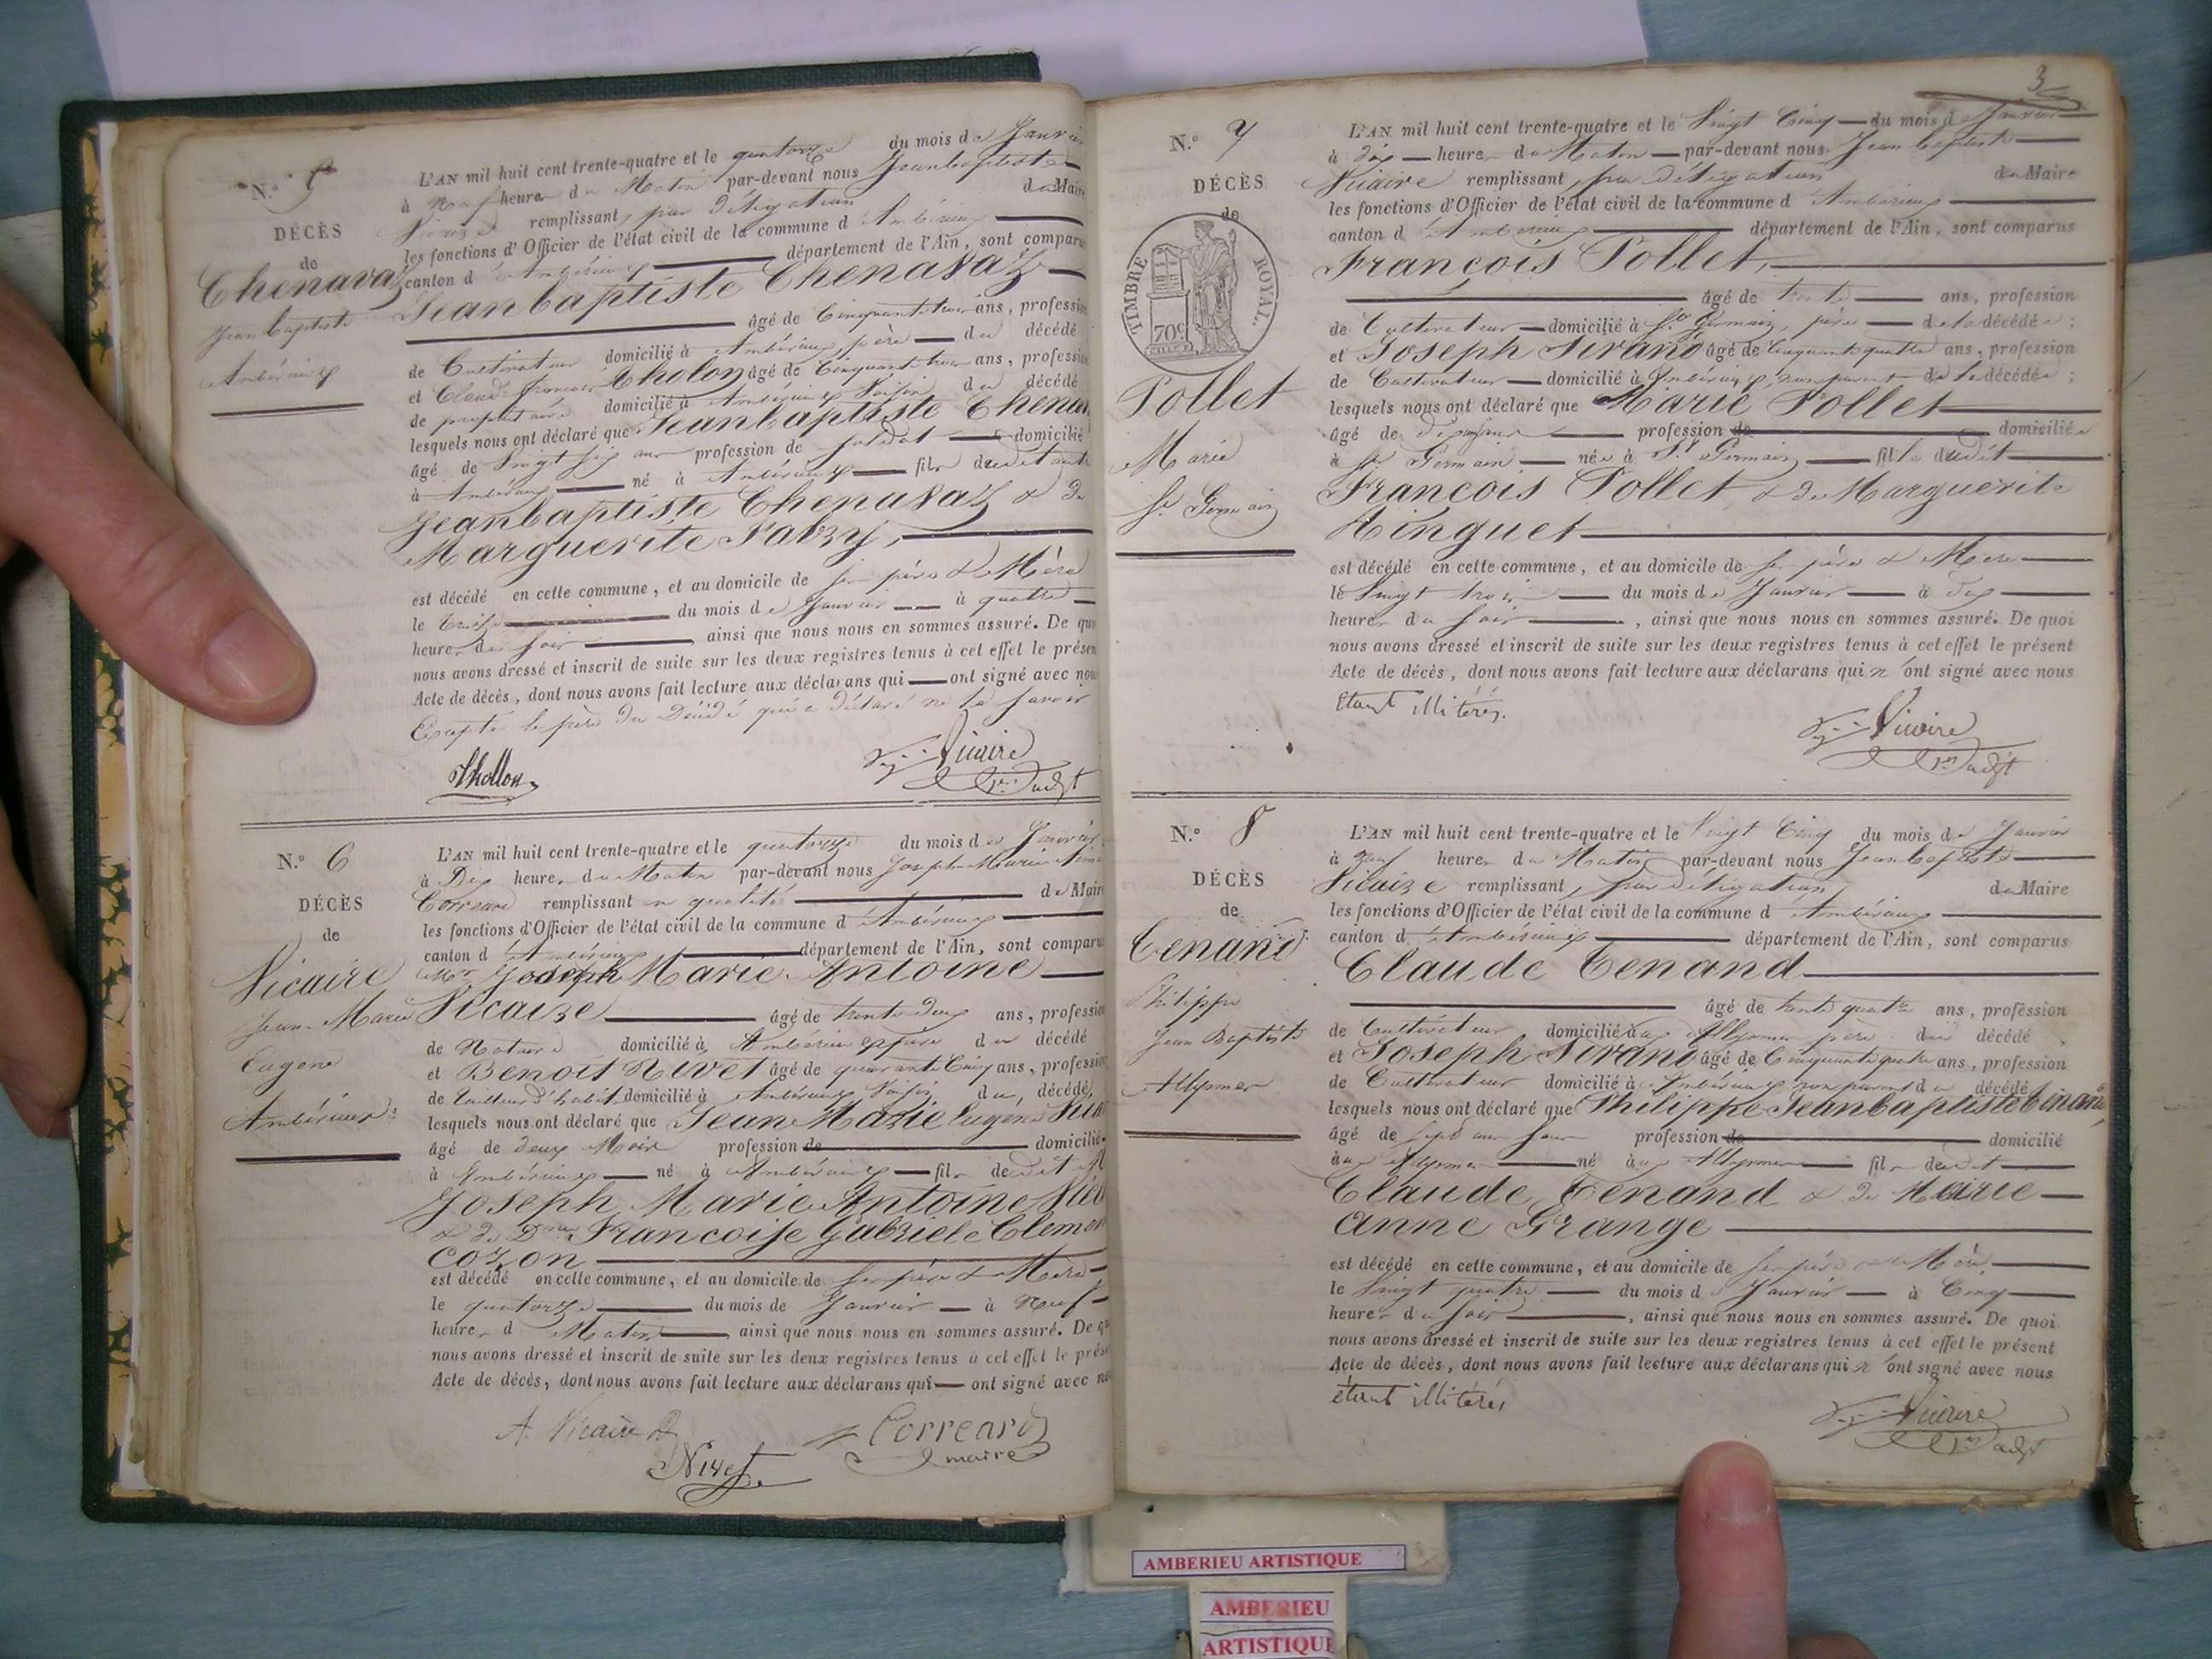 N.º 5
DÉCÈS
de
Chenavaz
Jean baptiste
Ambérieux
L'AN mil huit cent trente-quatre et le quatorze du mois de Janvier
à neuf heures du Matin par-devant nous Jean baptiste
Vicaire remplissant, par délégation du Maire
les fonctions d'Officier de l'état civil de la commune d'Ambérieux
canton d'Ambérieux département de l'Ain, sont comparus
Jean baptiste Chenavaz
âgé de Cinquante trois ans, profession
de Cultivateur domicilié à Ambérieux, père du décédé
et Claude françois Tholon âgé de Cinquante trois ans, profession
de propriétaire domicilié à Ambérieux Voisin du décédé
lesquels nous ont déclaré que Jean baptiste Chenav
âgé de Vingt six ans profession de soldat domicilié
à Ambérieux né à Ambérieux fils dudit
Jean baptiste Chenavaz & de
Marguerite Fabry,
est décédé en cette commune, et au domicile de ses père & Mère
le treize du mois de Janvier à quatre
heures du soir ainsi que nous nous en sommes assuré. De quoi
nous avons dressé et inscrit de suite sur les deux registres tenus à cet effet le présent
Acte de décès, dont nous avons fait lecture aux déclarans qui ont signé avec nous
Excepté le père du Décédé qui a déclaré ne le savoir
Thollon Vicaire
1er adjt
N.º 6
DÉCÈS
de
Vicaire
Jean-Marie
Eugene
Ambérieux
L'AN mil huit cent trente-quatre et le quatorze du mois de Janvier
à Dix heures du Matin par-devant nous Joseph-Maurice
Correard remplissant en qualité de Maire
les fonctions d'Officier de l'état civil de la commune d'Ambérieux
canton d'Ambérieux département de l'Ain, sont comparus
Mr Joseph Marie Antoine
Vicaire âgé de trente deux ans, profession
de Notaire domicilié à Ambérieux père du décédé
et Benoit Nivet âgé de quarante Cinq ans, profession
de tailleur d'habit domicilié à Ambérieux Voisin du décédé
lesquels nous ont déclaré que Jean Marie Eugene
âgé de deux Mois profession de domicilié
à Ambérieux né à Ambérieux fils dedit
Joseph Marie Antoine
& de Dme Francoise Gabriele Clemen
Cozon
est décédé en cette commune, et au domicile de ses père & Mère
le quatorze du mois de Janvier à Neuf
heures d Matin ainsi que nous nous en sommes assuré. De
nous avons dressé et inscrit de suite sur les deux registres tenus à cet effet le
Acte de décès, dont nous avons fait lecture aux déclarans qui ont signé avec
A. Vicaire
Nivet
Correard
maire
3
N.º 7
DÉCÈS
de
TIMBRE ROYAL.
70c
Pollet
Marie
St Germain
L'AN mil huit cent trente-quatre et le Vingt Cinq du mois de Janvier
à dix heures du Matin par-devant nous Jean baptiste
Vicaire remplissant, par délégation du Maire
les fonctions d'Officier de l'état civil de la commune d'Ambérieux
canton d'Ambérieux département de l'Ain, sont comparus
François Pollet,
âgé de trente ans, profession
de Cultivateur domicilié à St Germain, père de la décédée;
et Joseph Sirand âgé de Cinquante quatre ans, profession
de Cultivateur domicilié à Ambérieux, non parent de la décédée;
lesquels nous ont déclaré que Marie Pollet
âgé de profession de domiciliée
à St Germain née à St Germain fille dudit
François Pollet & de Marguerite
Ringuet
est décédé en cette commune, et au domicile de ses père & Mère
le Vingt trois du mois de Janvier à dix
heures du soir, ainsi que nous nous en sommes assuré. De quoi
nous avons dressé et inscrit de suite sur les deux registres tenus à cet effet le présent
Acte de décès, dont nous avons fait lecture aux déclarans qui n'ont signé avec nous
Etant illitérés.
Vicaire
1er adjt
N.º 8
DÉCÈS
de
Tenand
Philippe
Jean Baptiste
Allymes
L'AN mil huit cent trente-quatre et le Vingt Cinq du mois de Janvier
à neuf heures du Matin par-devant nous Jean baptiste
Vicaire remplissant, par délégation du Maire
les fonctions d'Officier de l'état civil de la commune d'Ambérieux
canton d'Ambérieux département de l'Ain, sont comparus
Claude Tenand
âgé de trente quatre ans, profession
de Cultivateur domicilié aux Allymes père du décédé
et Joseph Sirand âgé de Cinquante quatre ans, profession
de Cultivateur domicilié à Ambérieux non parent du décédé
lesquels nous ont déclaré que Philippe Jean baptiste Tenand,
âgé de profession de domicilié
aux Allymes né aux Allymes fils dudit
Claude Tenand & de Marie
Anne Grange
est décédé en cette commune, et au domicile de ses père et Mère,
le Vingt quatre du mois de Janvier à Cinq
heures du soir, ainsi que nous nous en sommes assuré. De quoi
nous avons dressé et inscrit de suite sur les deux registres tenus à cet effet le présent
Acte de décès, dont nous avons fait lecture aux déclarans qui n'ont signé avec nous
étant illitérés
Vicaire
1er adjt
AMBERIEU ARTISTIQUE
AMBERIEU
ARTISTIQUE